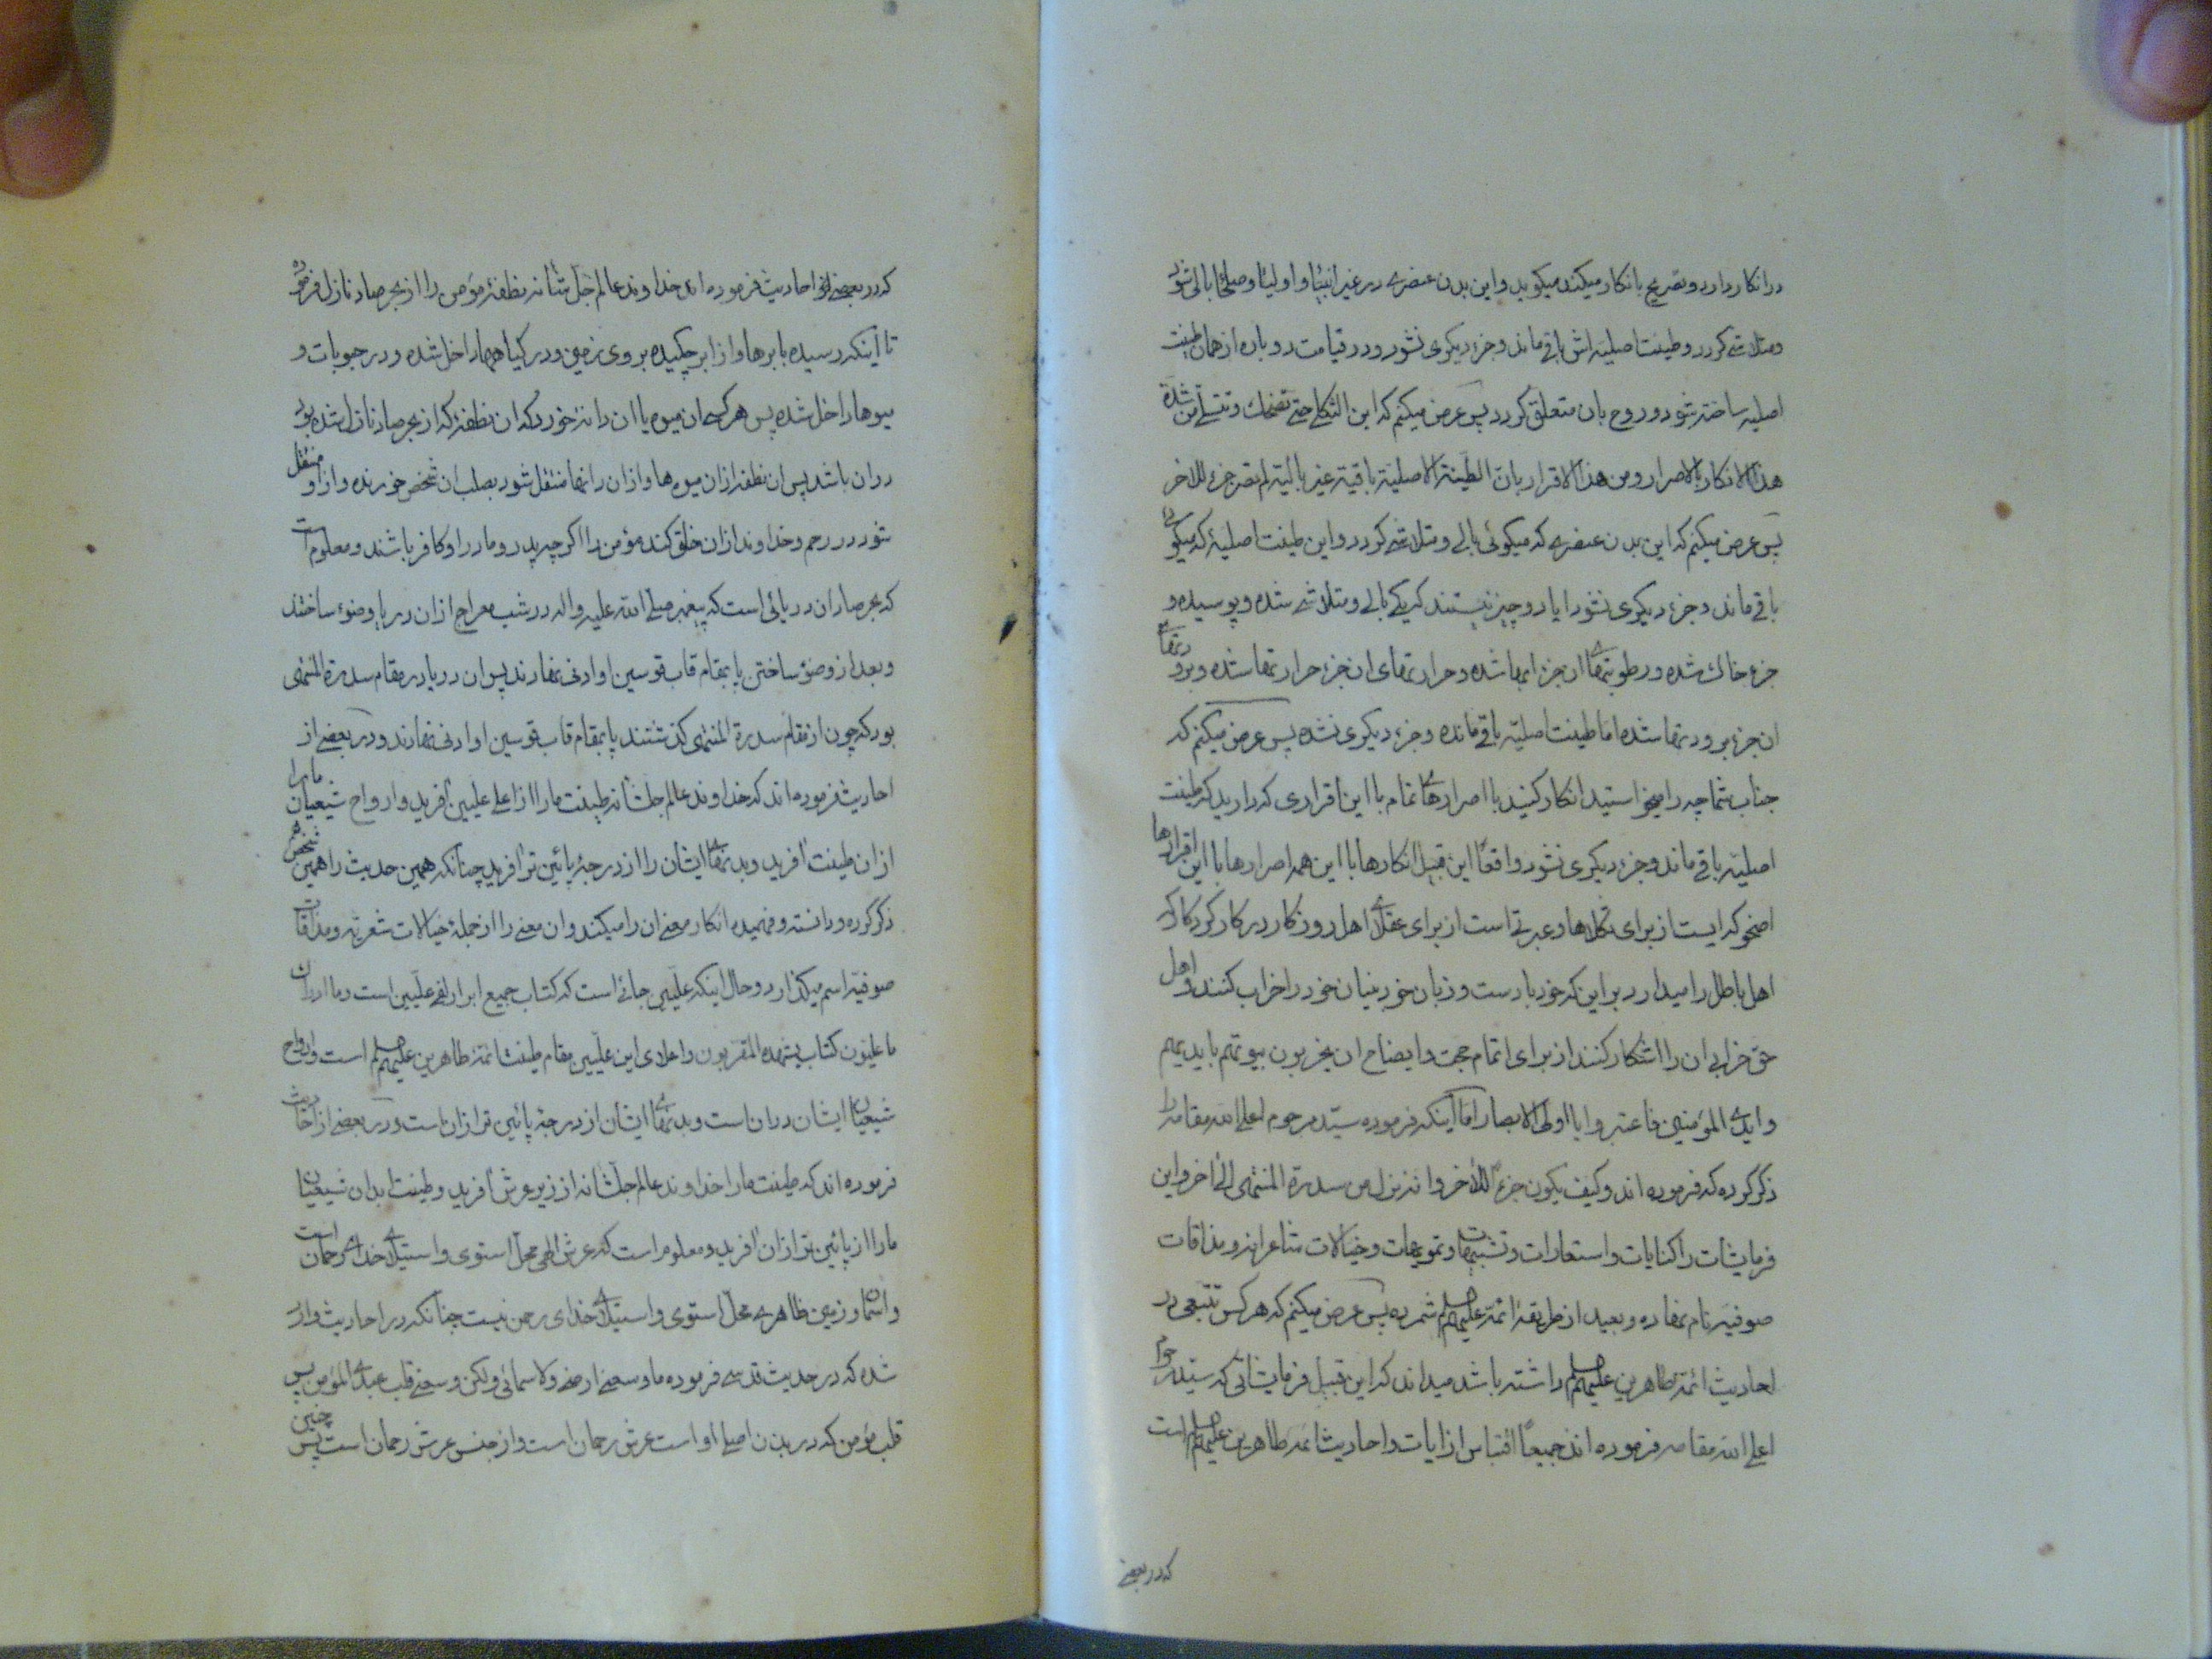 در انکار دارد و تصریح بانکار میکند میکوید و این بدن عنصری در غیر انبیا و اولیا و صلحا بالی شود
و متلاشی کردد و طینت اصلیه اش باقی ماند و جزء دیکری نشود و در قیامت دوباره از همان طینت
اصلیه ساخته شود و روح بان متعلق کردد پس عرض میکنم که این الثکلی حتی تضحک و تتسلی من شدة
هذا الانکار بالاصرار و من هذا الاقرار بان الطینة الاصلیة باقیة غیر بالیة لم تصر جزء للاخر
پس عرض میکنم که این بدن عنصری که میکوئی بالی و متلاشی کردد و این طینت اصلیهٔ که میکوئی
باقی ماند و جزء دیکری نشود ایا دو چیز نیستند که یکی بالی و متلاشی شده و پوسیده و
جزء خاک شده و رطوبتهای ان جزء ابها شده و حرارتهای ان جزء حرارتها شده و برودتهای
ان جزء برودتها شده اما طینت اصلیه باقی مانده و جزء دیکری نشده پس عرض میکنم که
جناب شما چه را میخواستید انکار کنید با اصرارهای تمام با این اقراری که دارید که طینت
اصلیه باقی ماند و جزء دیکری نشود واقعاً این قبیل انکارها با این همه اصرارها با این اقرارها
اضحوکه ایست از برای ثکلاها و عبرتی است از برای عقلای اهل روزکار در کار کردکار که
اهل باطل را میدارد بر این که خود با دست و زبان خود بنیان خود را خراب کنند و اهل
حق خرابی ان را اشکار کنند از برای اتمام حجت و ایضاح ان یخربون بیوتهم بایدیهم
و ایدی المؤمنین فاعتبروا یا اولی الابصار اما اینکه فرموده سید مرحوم اعلی الله مقامه را
ذکر کرده که فرموده اند و کیف یکون جزءً للاخر و انه نزل من سدرة المنتهی الی اخر و این
فرمایشات را کنایات و استعارات و تشبیهات و تمویهات و خیالات شاعرانه و مذاقات
صوفیه نام نهاده و بعید از طریقهٔ ائمه علیهم السلم شمرده پس عرض میکنم که هرکس تتبعی در
احادیث ائمه طاهرین علیهم السلم داشته باشد میداند که این قبیل فرمایشاتی که سید مرحوم
اعلی الله مقامه فرموده اند جمیعاً اقتباس از ایات و احادیث ائمه طاهرین علیهم السلم است
که در بعضی
که در بعضی از احادیث فرموده اند خداوند عالم جل شانه نطفهٔ مؤمن را از بحر صاد نازل فرموده
تا اینکه رسیده بابرها و از ابر چکیده بروی زمین و در کیاهها داخل شده و در حبوبات و
میوها داخل شده پس هرکس ان میوه یا ان دانه خورد که ان نطفهٔ که از بحر صاد نازل شده بود
در ان باشد پس ان نطفه از ان میوه ها و از ان دانها منتقل شود بصلب ان شخص خورنده و از او منتقل
شود در رحم و خداوند از ان خلق کند مؤمن را اکرچه پدر و مادر او کافر باشند و معلوم است
که بحر صاد ان دریائی است که پیغمبر صلی الله علیه و اله در شب معراج از ان دریا وضوء ساختند
و بعد از وضوء ساختن پا بمقام قاب قوسین او ادنی نهادند پس ان دریا در مقام سدرة المنتهی
بود که چون از مقام سدرة المنتهی کذشتند پا بمقام قاب قوسین او ادنی نهادند و در بعضی از
احادیث فرموده اند که خداوند عالم جل شانه طینت ما را از اعلی علیین افرید و ارواح شیعیان ما را
از ان طینت افرید و بدنهای ایشان را از درجهٔ پائین تر افرید چنانکه همین حدیث را همین شخص هم
ذکر کرده و دانسته و فهمیده انکار معنی ان را میکند و ان معنی را از جملهٔ خیالات شعریه و مذاقات
صوفیه اسم میکذارد و حال اینکه علیین جائی است که کتاب جمیع ابرار لفی علیین است و ما ادراک
ما علیون کتاب یشهده المقربون و اعلای این علیین مقام طینت ائمه طاهرین علیهم السلم است و ارواح
شیعیان ایشان در ان است و بدنهای ایشان از درجهٔ پائین تر از ان است و در بعضی از احادیث
فرموده اند که طینت ما را خداوند عالم جل شانه از زیر عرش افرید و طینت ابدان شیعیان
ما را از پائین تر از ان افرید و معلوم است که عرش الهی محل استوی و استیلای خدای رحمان است
و اسمان و زمین ظاهری محل استوی و استیلای خدای رحمن نیست چنانکه در احادیث وارد
شده که در حدیث قدسی فرموده ما وسعنی ارضی و لا سمائی و لکن وسعنی قلب عبدی المؤمن پس
قلب مؤمن که در بدن اصلی او است عرش رحمان است و از جنس عرش رحمان است پس چنین